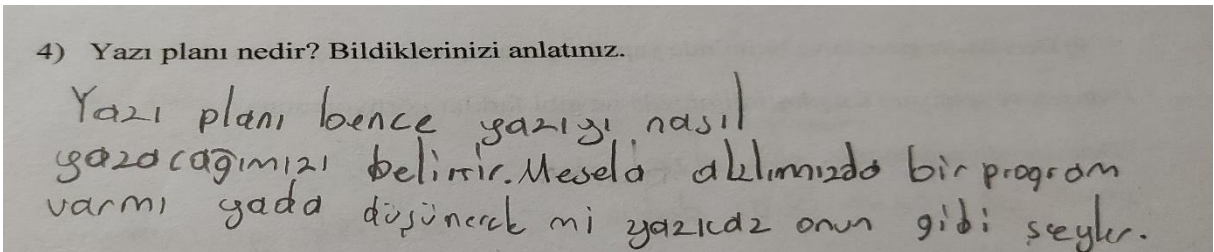 4) Yazı planı nedir? Bildiklerinizi anlatınız.
Yazı planı bence yazıyı nasıl
yazacağımızı belirtir. Mesela aklımızda bir program
varmı yada düşünerek mi yazıcaz onun gibi şeyler.